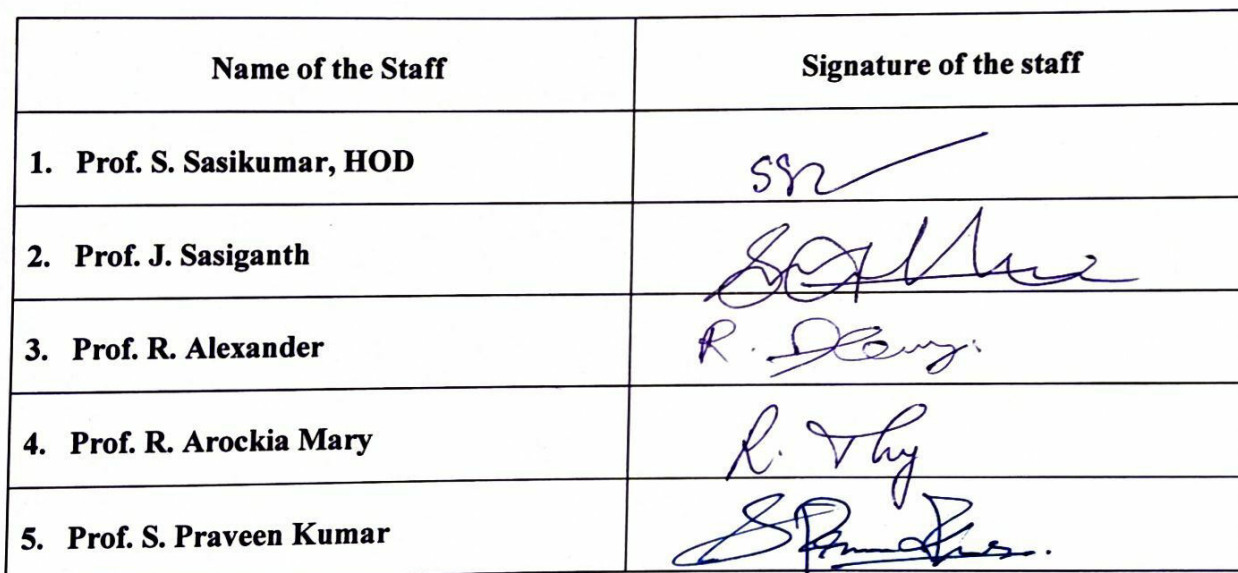 Name of the Staff Signature of the staff
1. Prof. S. Sasikumar, HOD
2. Prof. J. Sasiganth
3. Prof. R. Alexander
R.
4. Prof. R. Arockia Mary
R.
5. Prof. S. Praveen Kumar